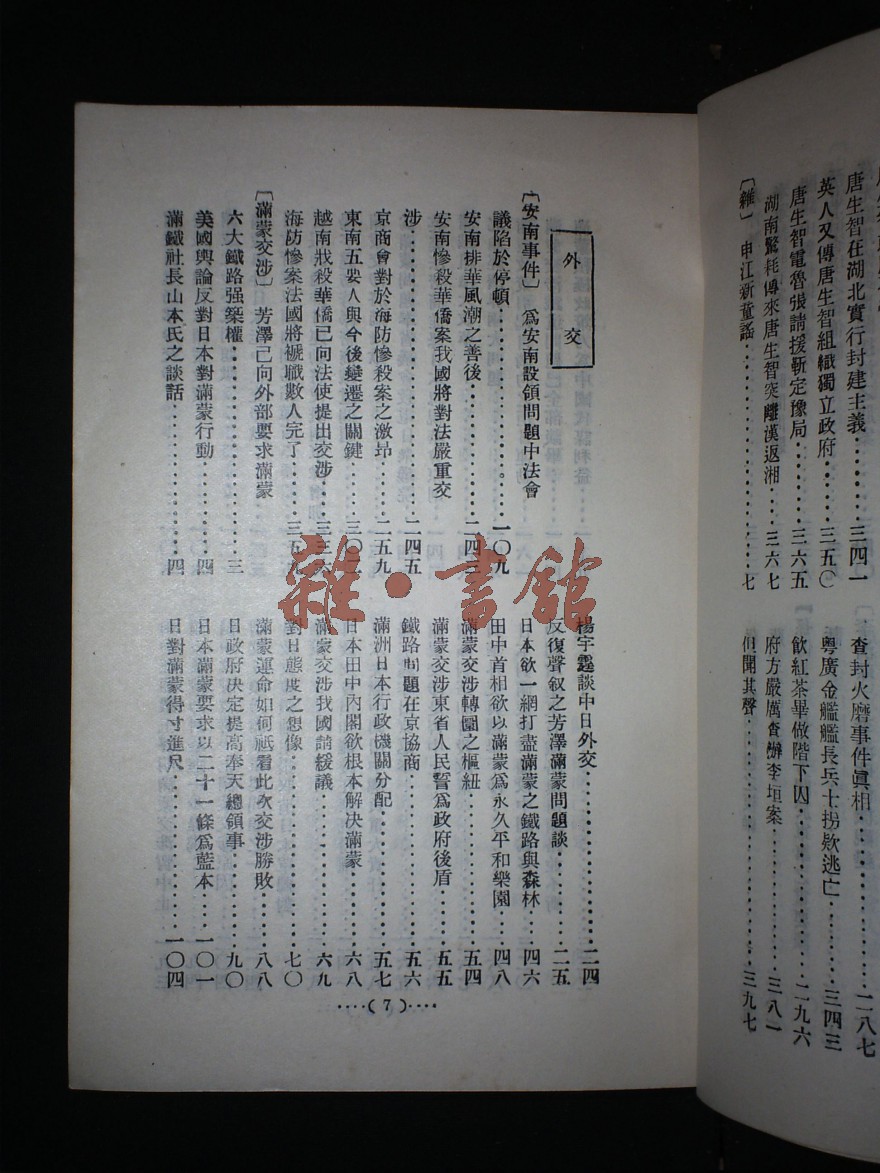 唐生智在湖北實行封建主義‥‥‥三四一
英人又傳唐生智組織獨立政府‥‥‥三五〇
唐生智電魯張請援靳定豫局‥‥‥三六五
湖南驚耗傳來唐生智突離漢返湘‥‥‥三六七
〔雜〕 申江新童謠‥‥‥七
查封火磨事件眞相‥‥‥二八七
粵廣金艦艦長兵士拐欵逃亡‥‥‥三四三
飲紅茶畢做階下囚‥‥‥二九六
府方嚴厲查辦李垣案‥‥‥三八一
但聞其聲‥‥‥三九七
外交
〔安南事件〕 爲安南設領問題中法會
議陷於停頓‥‥‥一〇九
安南排華風潮之善後‥‥‥二四三
安南慘殺華僑案我國將對法嚴重交
涉‥‥‥二四五
京商會對於海防慘殺案之激昂‥‥‥二五九
東南五要人與今後變遷之關鍵‥‥‥三〇二
越南戕殺華僑已向法使提出交涉‥‥‥三三六
海防慘案法國將褫職數人完了‥‥‥三五九
〔滿蒙交涉〕 芳澤已向外部要求滿蒙
六大鐵路强築權‥‥‥三
美國輿論反對日本對滿蒙行動‥‥‥四
滿鐵社長山本氏之談話‥‥‥四
楊宇霆談中日外交‥‥‥二四
反復聲叙之芳澤滿蒙問題談‥‥‥二五
日本欲一網打盡滿蒙之鐵路與森林‥‥‥四六
田中首相欲以滿蒙爲永久平和樂園‥‥‥四八
滿蒙交涉轉圜之樞紐‥‥‥五四
滿蒙交涉東省人民誓爲政府後盾‥‥‥五五
鐵路問題在京協商‥‥‥五六
滿洲日本行政機關分配‥‥‥五七
日本田中內閣欲根本解决滿蒙‥‥‥六八
滿蒙交涉我國請緩議‥‥‥六九
對日態度之想像‥‥‥七〇
滿蒙運命如何祇看此次交涉勝敗‥‥‥八八
日政府决定提高奉天總領事‥‥‥九〇
日本滿蒙要求以二十一條爲藍本‥‥‥一〇一
日對滿蒙得寸進尺‥‥‥一〇四
‥‥(7)‥‥
雜·書館